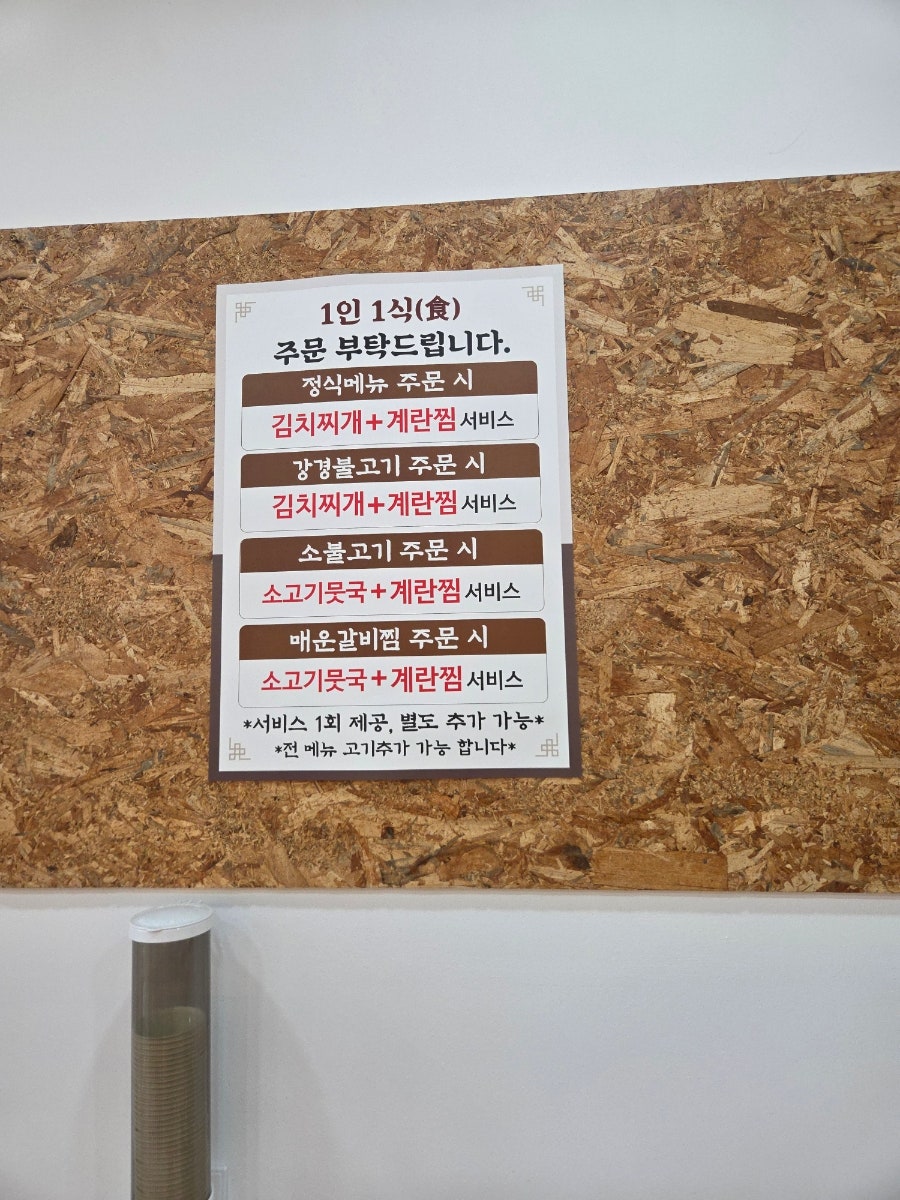 1인 1식(食)
주문 부탁드립니다.
정식메뉴 주문 시
김치찌개+계란찜 서비스
강경불고기 주문 시
김치찌개+계란찜 서비스
소불고기 주문 시
소고기뭇국+계란찜 서비스
매운갈비찜 주문 시
소고기뭇국+계란찜 서비스
*서비스 1회 제공, 별도 추가 가능*
*전 메뉴 고기추가 가능 합니다*